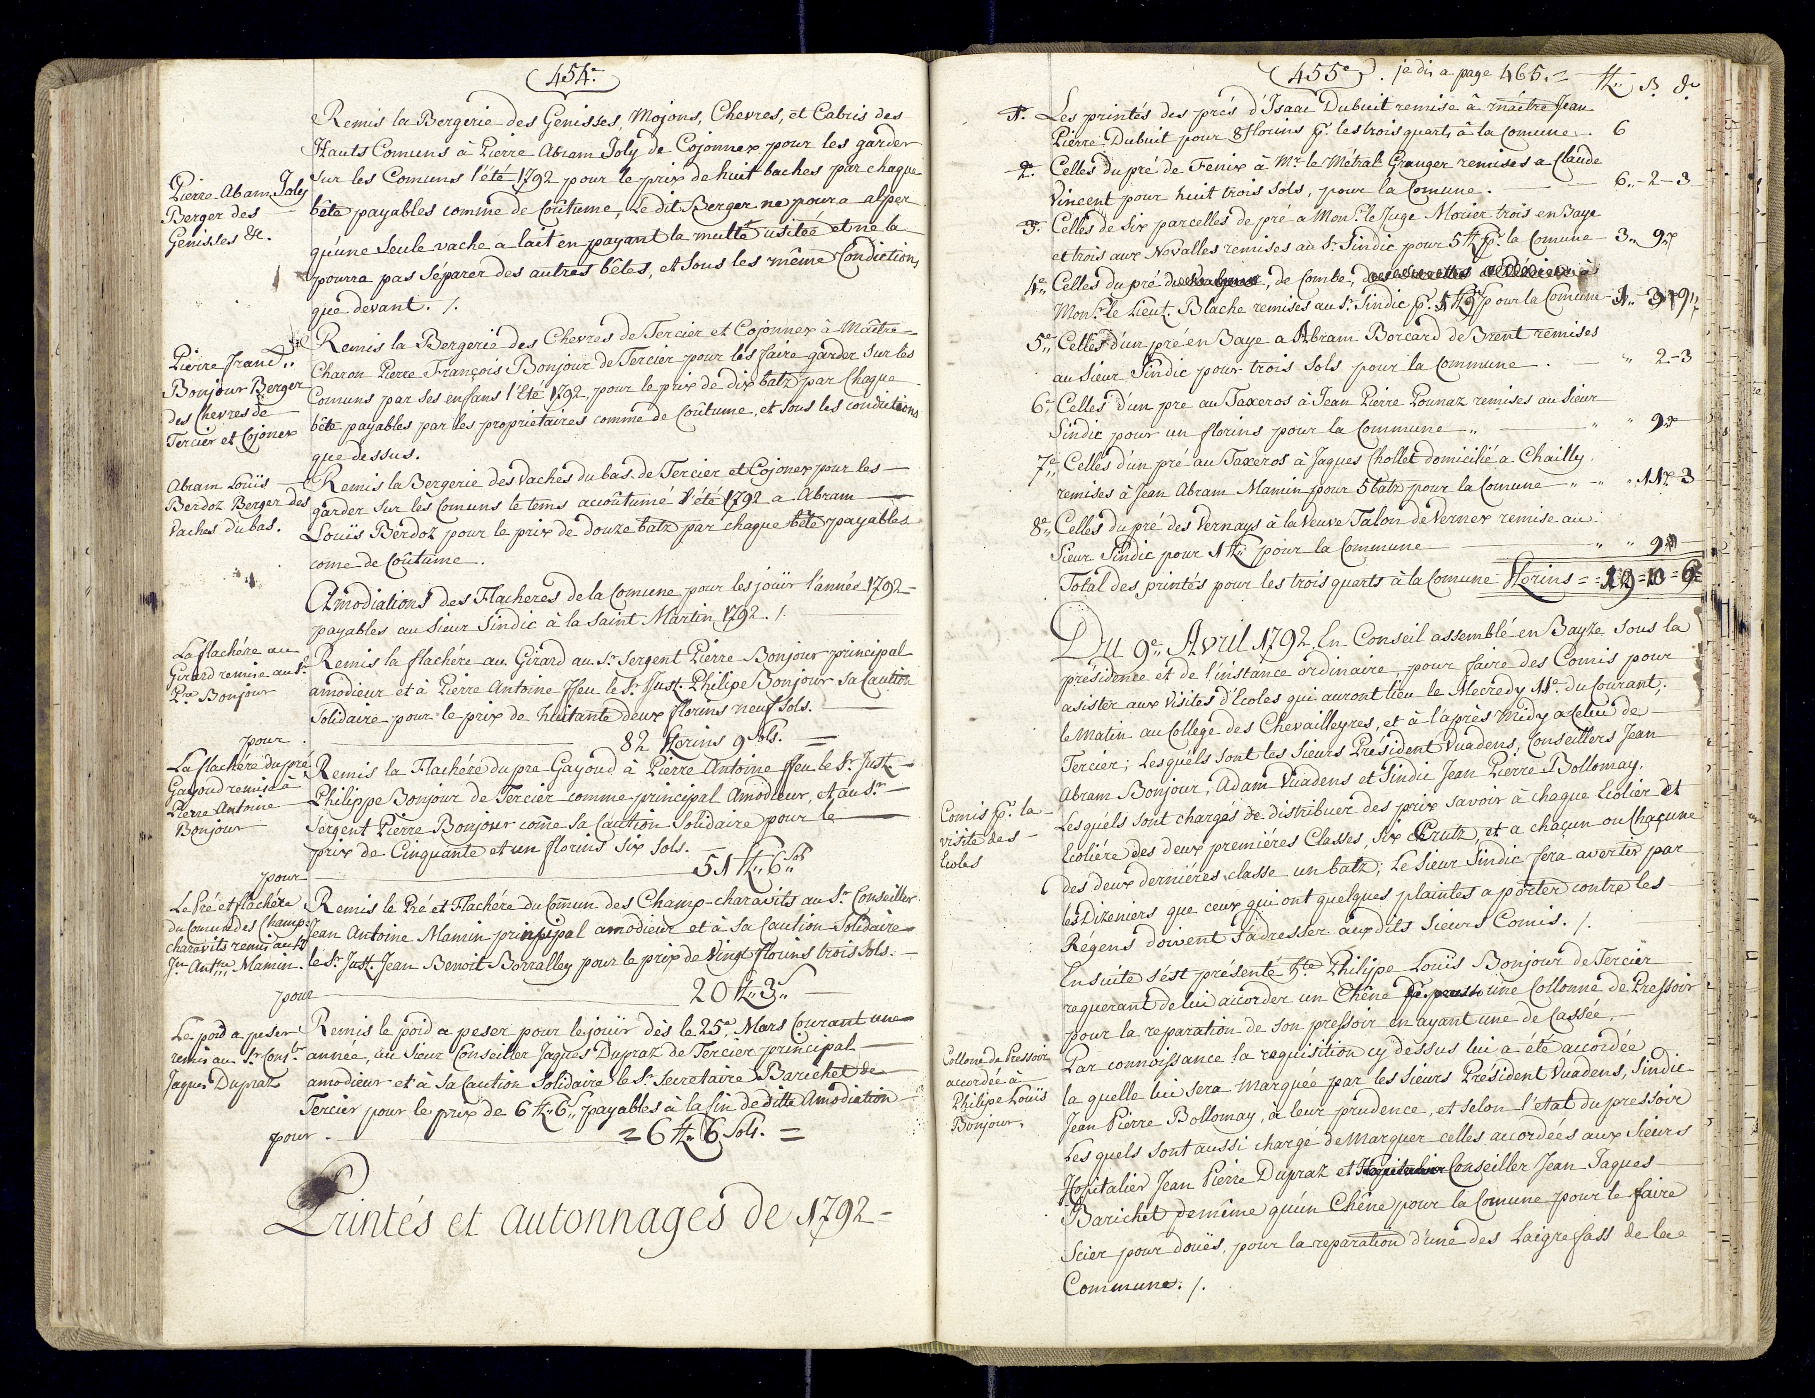 454e
Remis la Bergerie des Genisses, Mojons, Chevres, et Cabris des
Hauts Comuns à Pierre Abram Joly de Cojonnex pour les garder
sur les Comuns l'été 1792 pour le prix de huit baches par chaque
bête payables comme de Coûtume, Le dit Berger ne poura alper
qu'une seule vache a lait en payant la multe usitée et ne la
pourra pas séparer des autres bêtes, et sous les même Condiction,
que devant. /.
Pierre Abam Joly
Berger des
Genisses &c.
Remis la Bergerie des Chevres de Tercier et Cojonnex à Maître
Charon Pierre François Bonjour de Tercier pour les faire garder sur les
Comuns par ses enfans l'Eté 1792, pour le prix de dix batz par Chaque
bête payables par les propriétaires comme de Coûtume, et sous les conditions
que dessus.
Pierre franç.s
Bonjour Berger
des Chevres de
Tercier et Cojonex
Remis la Bergerie des Vaches du bas de Tercier et Cojonex pour les
garder sur les Comuns le tems accoûtumé l'été 1792 a Abram
Louïs Berdoz pour le prix de douze batz par chaque bête payables
come de Coûtume.
Abram Louïs
Berdoz Berger des
Vaches du bas.
Amodiations des Flacheres de la Comune pour les jouïr l'année 1792
payables au Sieur Sindic à la Saint Martin 1792. /.
Remis la flachére au Girard au Sr. Sergent Pierre Bonjour principal
amodieur et à Pierre Antoine ffeu le Sr. Just. Philipe Bonjour sa Caution
Solidaire pour le prix de huitante deux florins neuf Sols.
82 florins 9 sols.
La flachére au
Girard remise au Sr.
Pre. Bonjour
pour
Remis la Flachére du pre Gayoud à Pierre Antoine ffeu le Sr. Just.
Philippe Bonjour de Tercier comme principal Amodieur, et au Sr.
Sergent Pierre Bonjour come sa Caution Solidaire pour le
prix de Cinquante et un florins Six Sols.
51 ff 6 sols
La flachére du pré
Gayoud remise à
Pierre Antoine
Bonjour
pour
Remis le Pré et Flachére du Comun des Champ-charavits au Sr. Conseiller
Jean Antoine Mamin principal amodieur et à sa Caution Solidaire
le Sr. Just. Jean Benoit Borralley pour le prix de Vingt florins trois Sols.
20 ff 3 s
Le Pré et flachére
du Comun des Champ
charavits remis au Sr
Jn Antne Mamin.
pour
Remis le poid a peser pour le jouïr dès le 25e Mars Courant une
année, au Sieur Conseiller Jaques Dupraz de Tercier principal
amodieur et à sa Caution Solidaire le Sr. Secretaire Barichet de
Tercier pour le prix de 6 ff 6 s. payables à la fin de ditte Amodiation
= 6 ff 6 sols. =
Le poid a peser
remis au Sr. Conser
Jaques Dupraz
pour.
Printés et Autonnages de 1792
455e . je dis a page 465.
ff s d
1. Les printés des prés d'Isaac Dubuit remise à maître Jean
Pierre Dubuit pour 8 florins p. les trois quarts à la Comune. 6
2. Celles du pré de Fenix à Mr. le Métral Granger remises a Claude
Vincent pour huit trois Sols, pour la Comune. 6 - 2 - 3
3. Celles de Six parcelles de pré a Monsr le Juge Morier trois en Baye
et trois aux Novalles remises au Sr. Sindic pour 5 ff p. la Comune 3 9
4e Celles du pré de Combe, à
Monsr le Lieut. Blache remises au Sr. Sindic pour la Comune
5e Celles d'un pré en Baye a Abram Borcard de Brent remises
au Sieur Sindic pour trois Sols pour la Commune. 2 - 3
6e Celles d'un pre au Taxeros à Jean Pierre Pounaz remises au Sieur
Sindic pour un florins pour la Commune 9
7e Celles d'un pré au Taxeros à Jaques Chollet domicilié a Chailly
remises à Jean Abram Mamin pour 5 batz pour la Comune 11 3
8e Celles du pré des Vernays à la Veuve Talon de Vernex remise au
Sieur Sindic pour 1 ff pour la Commune 9
Total des printés pour les trois quarts à la Comune Florins = 19 = 10 = 6
Du 9e Avril 1792. En Conseil assemblé en Bayze sous la
présidence et de l'instance ordinaire, pour faire des Comis pour
asister aux Visites d'Ecoles qui auront lieu le Mecredy 11e du Courant,
le Matin au College des Chevailleyres, et à l'après Midy a Celui de
Tercier; Lesquels sont les Sieurs Président Vuadens, Conseillers Jean
Abram Bonjour, Adam Vuadens et Sindic Jean Pierre Bollomay.
Lesquels sont chargés de distribuer des prix savoir à chaque Ecolier et
Ecoliére des deux premiéres Classes, Six Crutz, et a chaçun ou Chaçune
des deux dernieres classe un batz; Le Sieur Sindic fera avertir par
les Dizeniers que ceux qui ont quelques plaintes a porter contre les
Régens doivent s'adresser aux dits Sieurs Comis. /.
Comis p. la
visite des
Ecoles
Ensuite s'est présenté hte Philipe Louïs Bonjour de Tercier
requerant de lui accorder un Chêne une Collonne de Pressoir
pour la reparation de son pressoir en ayant une de Cassée.
Par connoissance la requisition cy dessus lui a été accordée
la quelle lui sera marquée par les Sieurs Président Vuadens, Sindic
Jean Pierre Bollomay, à leur prudence, et selon l'etat du pressoir
Lesquels sont aussi chargé de marquer celles accordées aux Sieurs
Hopitalier Jean Pierre Dupraz et Conseiller Jean Jaques
Barichet de même qu'un Chêne pour la Comune pour le faire
Scier pour douës, pour la reparation d'une des Laigrefass de la
Commune. /.
Collone de Pressoir
accordée à
Philipe Louïs
Bonjour.